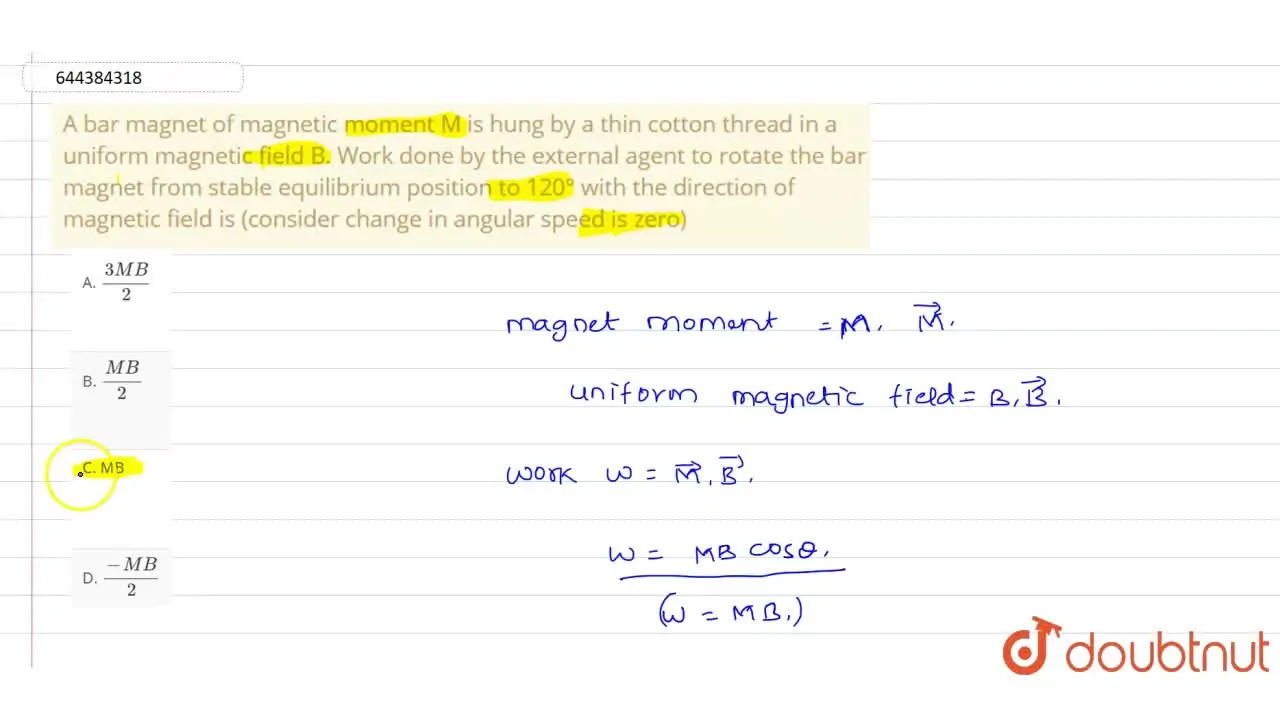 644384318
A bar magnet of magnetic moment M is hung by a thin cotton thread in a
uniform magnetic field B. Work done by the external agent to rotate the bar
magnet from stable equilibrium position to 120° with the direction of
magnetic field is (consider change in angular speed is zero)
A. 3MB/2
B. MB/2
C. MB
D. −MB/2
magnet moment = M, M⃗.
uniform magnetic field = B, B⃗.
work W = M⃗ . B⃗.
W = MB cosθ.
(W = MB.)
doubtnut